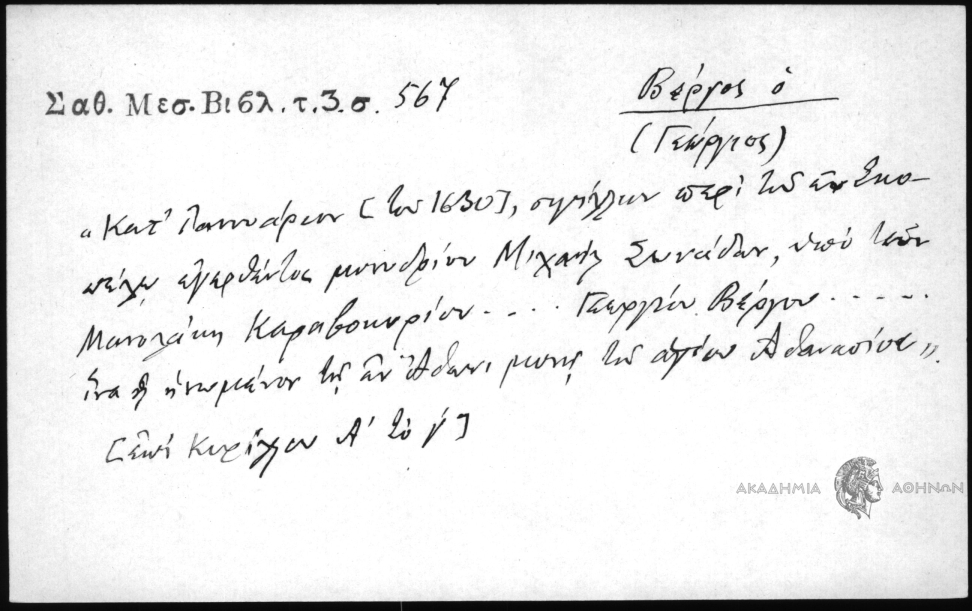 Σαθ. Μεσ. Βιβλ. τ. 3. σ. 567
Βέργος ὁ
(Γεώργιος)
"Κατ' Ἰαννουάριον [τοῦ 1630], σιγίλλιον περὶ τοῦ ἐν Σκο-
πέλῳ ἐγερθέντος μονυδρίου Μιχαὴλ Συνάδων, ὑπὸ τῶν
Μανολάκη Καραβοκυρίου .... Γεωργίου Βέργου .....
ἵνα ᾖ ἡνωμένον τῇ ἐν Ἄθωνι μονῇ τοῦ ἁγίου Ἀθανασίου".
[ἐπὶ Κυρίλλου Α' τὸ γ']
ΑΚΑΔΗΜΙΑ ΑΘΗΝΩΝ